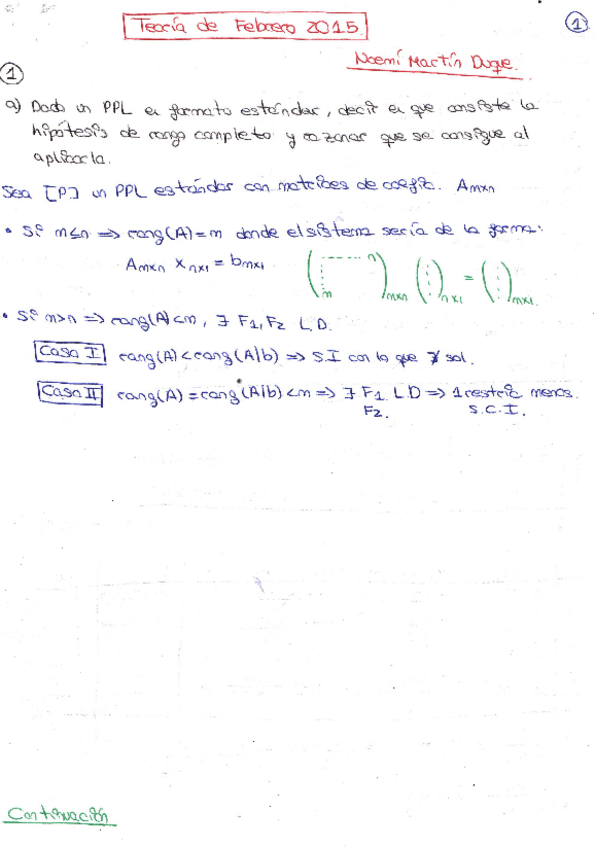 Teoría de Febrero 2015.
1
Noemí Martín Duque.
1
a) Dado un PPL en formato estándar, decir en que consiste la
hipótesis de rango completo y razonar que se consigue al
aplicarla.
Sea [P] un PPL estándar con matrices de coefic. Amxn
• Si m≤n => rang(A)=m donde el sistema sería de la forma:
Amxn Xnx1 = bmx1 ( n m )mxn ( )nx1 = ( )mx1.
• Si m>n => rang(A)<m, ∃ F1, F2 L.D.
Caso I rang(A)<rang(A|b) => S.I con lo que ∄ sol.
Caso II rang(A)=rang(A|b)<m => ∃ F1 L.D => 1 restric menos.
F2. S.C.I.
Continuación